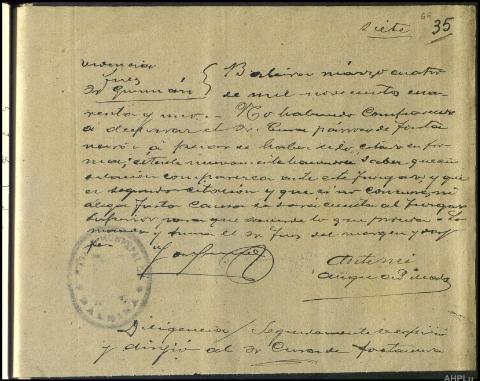 siete
35
Providencia
Juez
Sr Guzmán
Baleira marzo cuatro
de mil novecientos cua
renta y uno.- No habiendo comparecido
a declarar el Sr. Cura párroco de Fonta
neira a pesar de haber sido citado en for
ma, cítesele nuevamente haciendole saber que
comparezca ante este Juzgado, y que
es segunda citación y que si no concurre ni
alega justa causa se dará cuenta al Juzgado
superior para que acuerde lo que proceda. Lo
manda y firma el Sr. Juez del margen y doy
fe.
Ante mi
JUZGADO MUNICIPAL
BALEIRA
Diligencia / Seguidamente
y dirigió al Sr Cura de Fontaneira
AHPLu